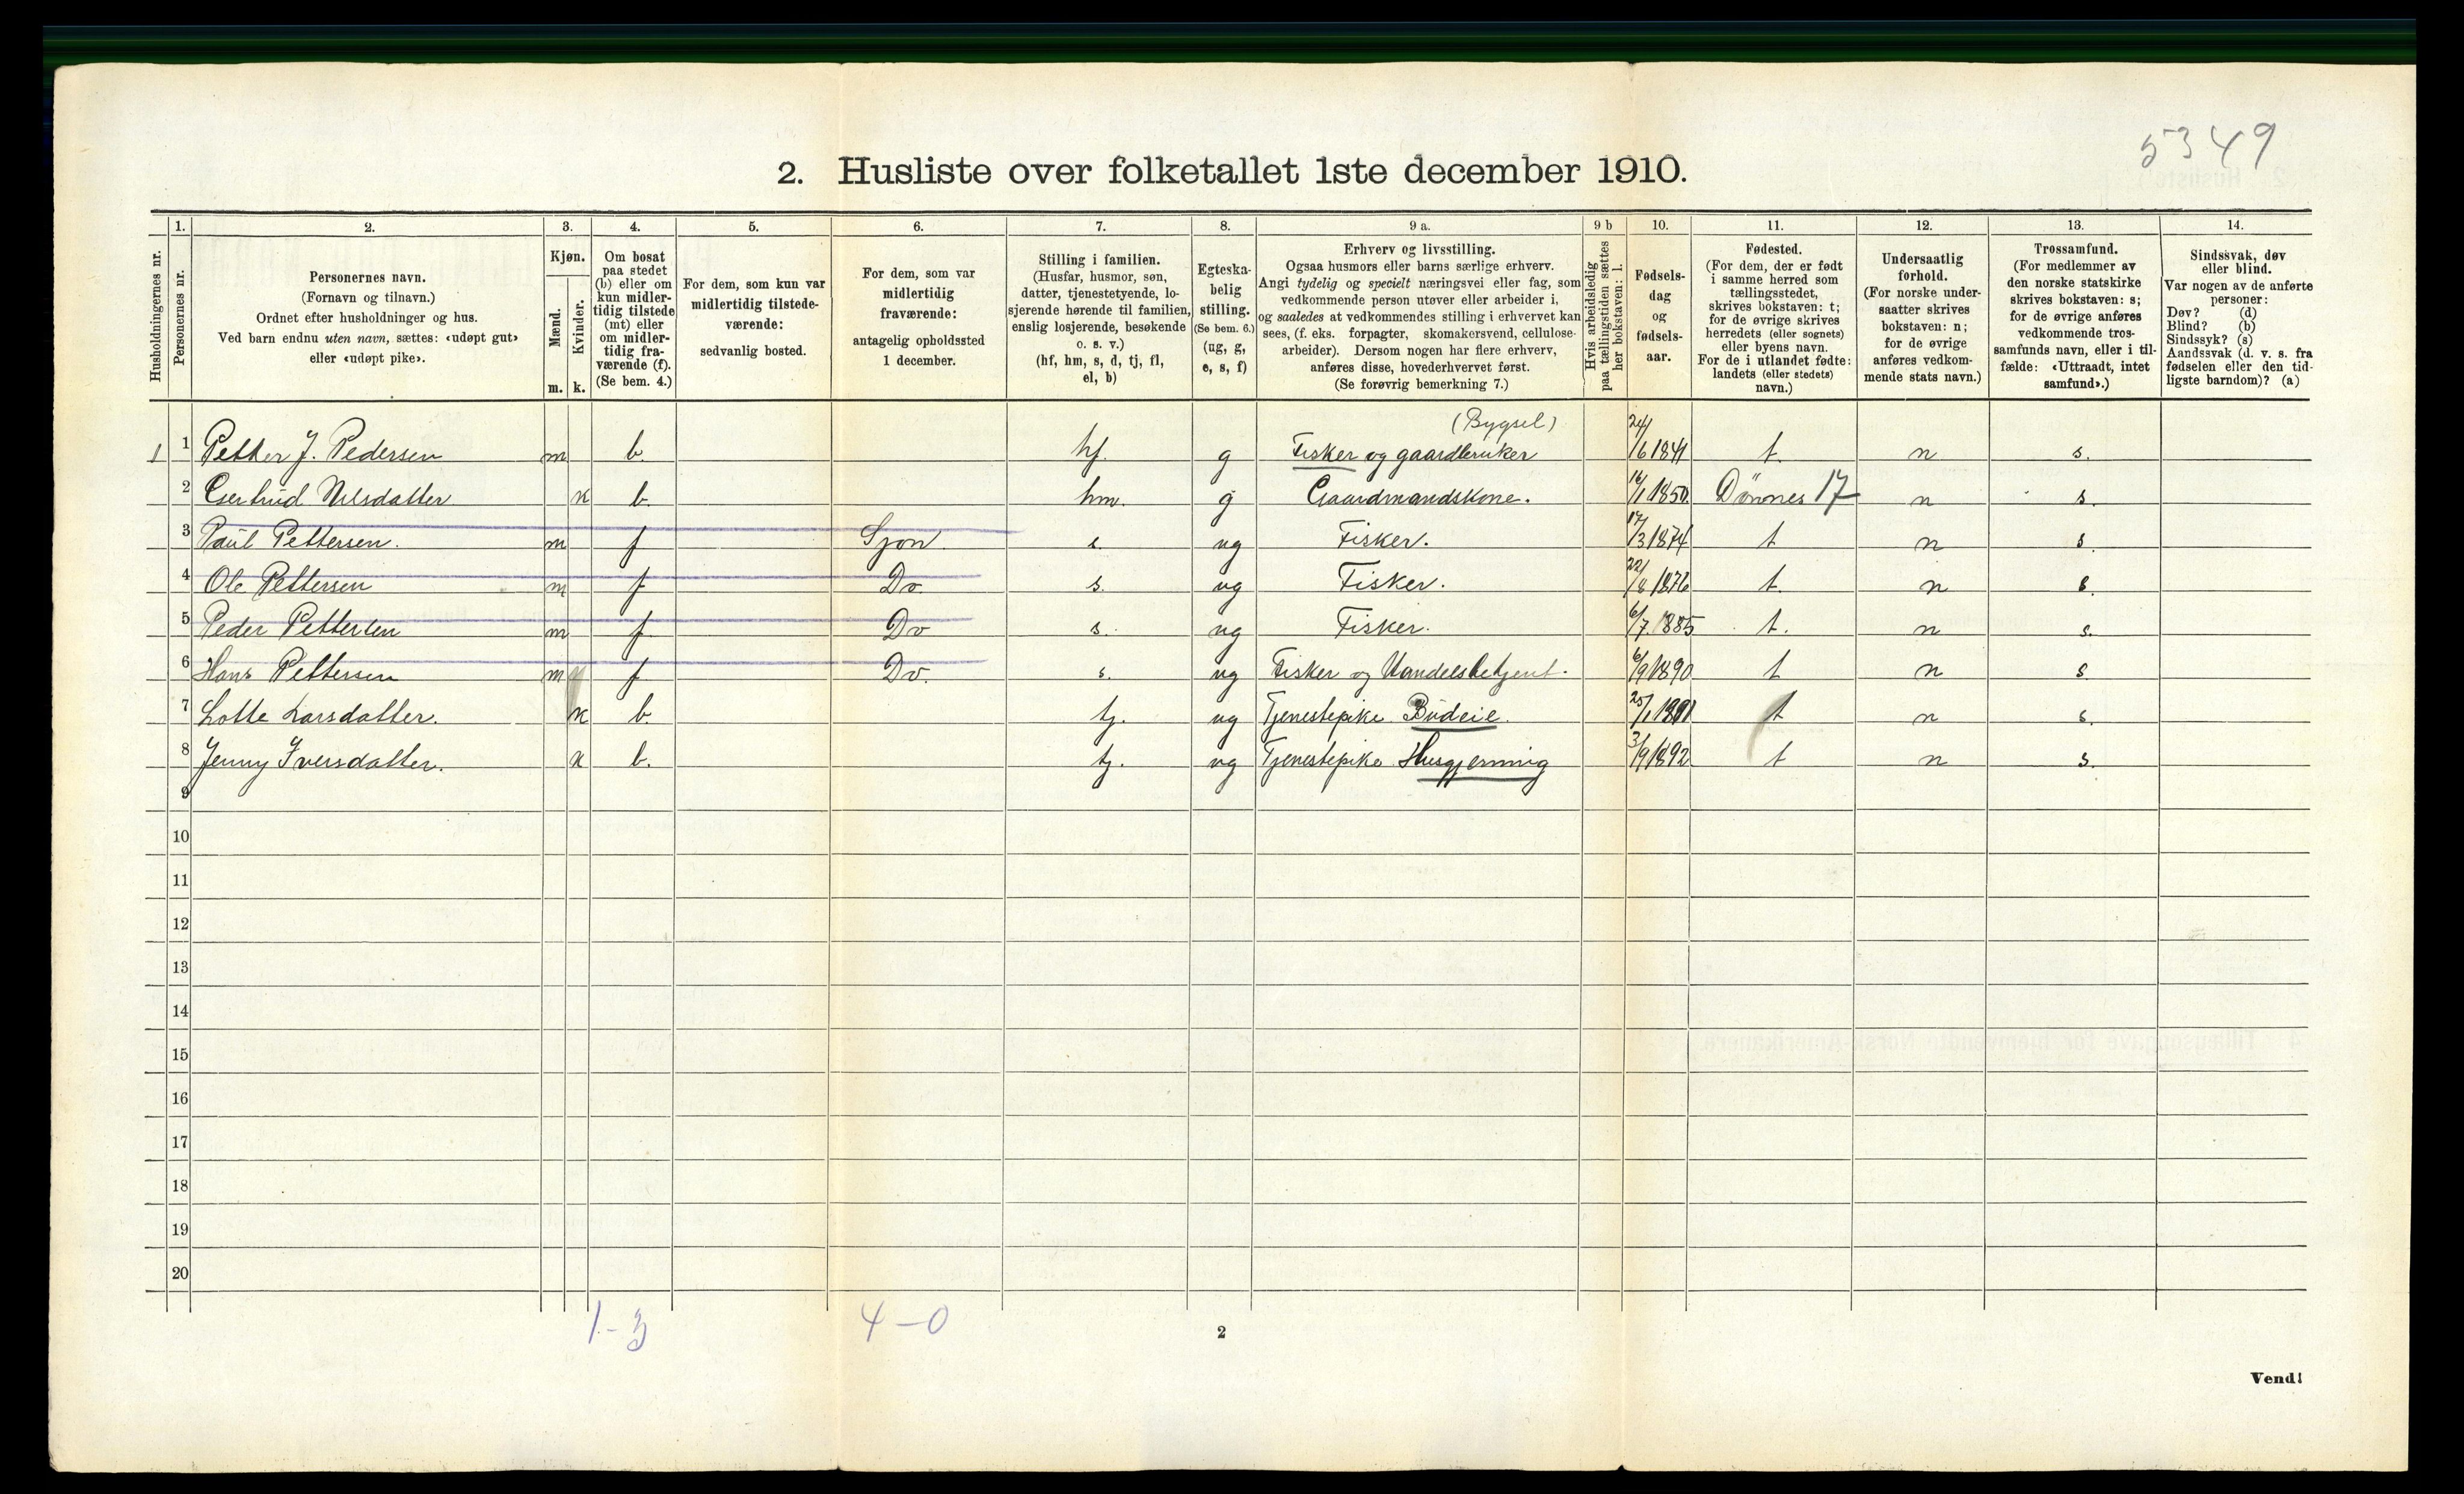 5349
2. Husliste over folketallet 1ste december 1910.
Husholdningernes nr.
1.
Personernes nr.
2.
Personernes navn.
(Fornavn og tilnavn.)
Ordnet efter husholdninger og hus.
Ved barn endnu uten navn, sættes: «udøpt gut»
eller «udøpt pike».
3.
Kjøn.
Mænd.
m.
Kvinder.
k.
4.
Om bosat
paa stedet
(b) eller om
kun midler-
tidig tilstede
(mt) eller
om midler-
tidig fra-
værende (f).
(Se bem. 4.)
5.
For dem, som kun var
midlertidig tilstede-
værende:
sedvanlig bosted.
6.
For dem, som var
midlertidig
fraværende:
antagelig opholdssted
1 december.
7.
Stilling i familien.
(Husfar, husmor, søn,
datter, tjenestetyende, lo-
sjerende hørende til familien,
enslig losjerende, besøkende
o. s. v.)
(hf, hm, s, d, tj, fl,
el, b)
8.
Egteska-
belig
stilling.
(Se bem. 6.)
(ug, g,
e, s, f)
9 a.
Erhverv og livsstilling.
Ogsaa husmors eller barns særlige erhverv.
Angi tydelig og specielt næringsvei eller fag, som
vedkommende person utøver eller arbeider i,
og saaledes at vedkommendes stilling i erhvervet kan
sees, (f. eks. forpagter, skomakersvend, cellulose-
arbeider). Dersom nogen har flere erhverv,
anføres disse, hovederhvervet først.
(Se forøvrig bemerkning 7.)
9 b
Hvis arbeidsledig
paa tællingstiden sættes
her bokstaven: l.
10.
Fødsels-
dag
og
fødsels-
aar.
11.
Fødested.
(For dem, der er født
i samme herred som
tællingsstedet,
skrives bokstaven: t;
for de øvrige skrives
herredets (eller sognets)
eller byens navn.
For de i utlandet fødte:
landets (eller stedets)
navn.)
12.
Undersaatlig
forhold.
(For norske under-
saatter skrives
bokstaven: n;
for de øvrige
anføres vedkom-
mende stats navn.)
13.
Trossamfund.
(For medlemmer av
den norske statskirke
skrives bokstaven: s;
for de øvrige anføres
vedkommende tros-
samfunds navn, eller i til-
fælde: «Uttraadt, intet
samfund».)
14.
Sindssvak, døv
eller blind.
Var nogen av de anførte
personer:
Døv? (d)
Blind? (b)
Sindssyk? (s)
Aandssvak (d. v. s. fra
fødselen eller den tid-
ligste barndom)? (a)
(Bygsel)
1 1 Petter J. Pedersen m b. hf. g Fisker og gaardbruker 24/6 1841 t. n s.
2 Gertrud Nilsdatter k b. hm. g Gaardmandskone. 16/1 1850. Dønnes 17 n s.
3 Paul Pettersen. m f Sjon. s. ug Fisker. 17/3 1874 t n s
4 Ole Pettersen m f Do. s. ug Fisker. 22/8 1876 t. n s.
5 Peder Pettersen m f Do s. ug Fisker. 6/7. 1885 t. n s.
6 Hans Pettersen m f Do. s. ug Fisker og Handelsbetjent. 6/9 1890 t n s
7 Lotte Larsdatter. k b. tj. ug Tjenestepike Budeie. 25/1 1891 t n s.
8 Jenny Iversdatter. k b. tj. ug Tjenestepike Husgjerning 3/9 1892 t n s.
9
10
11
12
13
14
15
16
17
18
19
20
1-3 4-0
2
Vend!